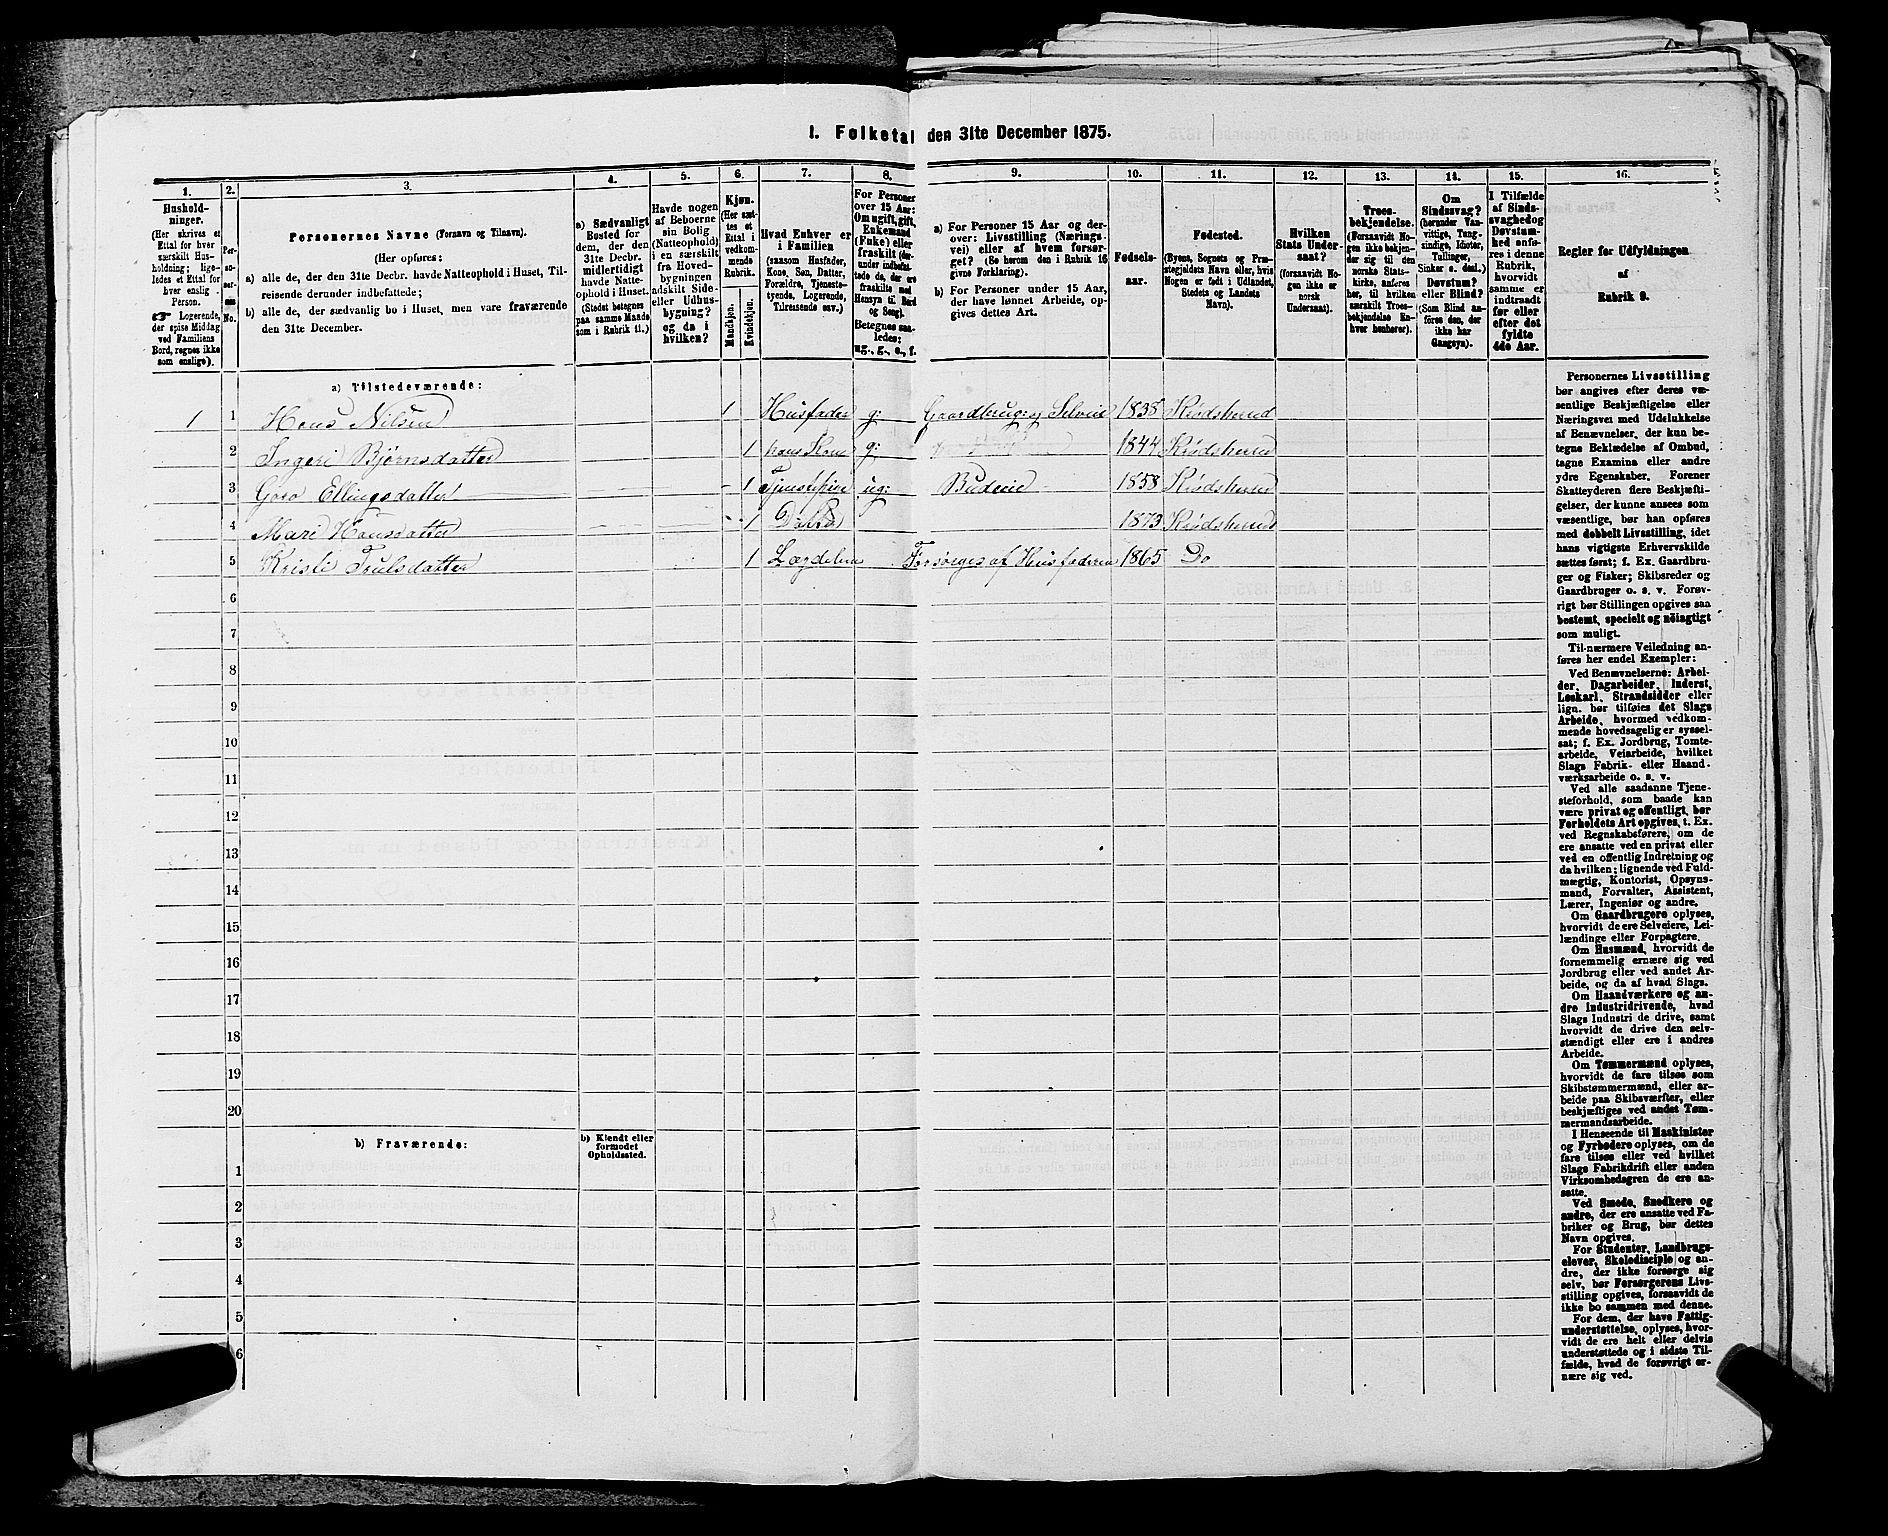 1. Folketal den 31te December 1875.
1. 2. 3. 4. 5. 6. 7. 8. 9. 10. 11. 12. 13. 14. 15. 16.
Husholdninger.
(Her skrives et
Ettal for hver
særskilt Husholdning;
ligeledes et Ettal for
hver enslig
Person.
Logerende,
der spise Middag
ved Familiens
Bord, regnes ikke
som enslige).
Personernes No.
Personernes Navne (Fornavn og Tilnavn).
(Her opføres:
a) alle de, der den 31te Decbr. havde Natteophold i Huset, Tilreisende derunder indbefattede;
b) alle de, der sædvanlig bo i Huset, men vare fraværende
den 31te December.
a) Sædvanligt
Bosted for
dem, der den
31te Decbr.
midlertidigt
havde Natteophold i Huset.
(Stedet betegnes
paa samme Maade
som i Rubrik 11.)
Havde nogen
af Beboerne
sin Bolig
(Natteophold)
i en særskilt
fra Hovedbygningen
adskilt Side-
eller Udhusbygning?
og da i
hvilken?
Kjøn.
(Her sættes et
Ettal i
vedkommende
Rubrik.
Mandkjøn.
Kvindekjøn.
Hvad Enhver er
i Familien
(saasom Husfader,
Kone, Søn, Datter,
Forældre, Tjenestetyende, Logerende,
Tilreisende osv.)
For Personer
over 15 Aar:
Om ugift, gift,
Enkemand
(Enke) eller
fraskilt
Betegnes saaledes:
ug., g., e., f.
a) For Personer 15 Aar og derover: Livsstilling (Næringsvei) eller af hvem forsørget? (Se herom den i Rubrik 16
givne Forklaring).
b) For Personer under 15 Aar,
der have lønnet Arbeide, opgives dettes Art.
Fødselsaar.
Fødested.
(Byens, Sognets og Præstegjeldets Navn eller, hvis
Nogen er født i Udlandet,
Stedets og Landets
Navn).
Hvilken
Stats Undersaat?
(forsaavidt Nogen ikke er
norsk
Undersaat).
Troesbekjendelse.
(Forsaavidt Nogen ikke bekjender sig til den
norske Statskirke, anføres
her, til hvilken
særskilt Troesbekjendelse Enhver henhører).
Om
Sindssvag?
(herunder Vanvittige, Tungsindige, Idioter,
Tullinger,
Sinker o. desl.)
Døvstum?
eller Blind?
(Som Blind anføres den, der
ikke har
Gangsyn).
I Tilfælde
af Sindssvaghed og
Døvstumhed anføres i denne
Rubrik,
hvorvidt
samme er
indtraadt
før eller
efter det
fyldte
4de Aar.
Regler for Udfyldningen
af
Rubrik 9.
a) Tilstedeværende:
1 1 Hans Nilsen 1 Husfader g: Gaardbrug: og Selveie 1838 Krødsherred
2 Ingeri Bjørnsdatter 1 hans Kone g: 1844 Krødsherred
3 Goro Ellingsdatter 1 Tjenestepige ug: Budeie 1858 Krødsherred
4 Mari Hansdatter 1 Datter 1873 Krødsherred
5 Kristi Trulsdatter 1 Lægdelem Forsørges af Husfaderen 1865 Do
6
7
8
9
10
11
12
13
14
15
16
17
18
19
20
b) Fraværende:
b) Kjendt eller
formodet
Opholdssted.
1
2
3
4
5
6
Personernes Livsstilling
bør angives efter deres væsentlige Beskjæftigelse eller
Næringsvei med Udelukkelse
af Benævnelser, der kun betegne Beklædelse af Ombud,
tagne Examina eller andre
ydre Egenskaber. Forener
Skatteyderen flere Beskjæftigelser, der kunne ansees som
væsentlige, bør han opføres
med dobbelt Livsstilling, idet
hans vigtigste Erhvervskilde
sættes først; f. Ex. Gaardbruger og Fisker; Skibsreder og
Gaardbruger o. s. v. Forøvrigt bør Stillingen opgives saa
bestemt, specielt og nøiagtigt
som muligt.
Til nærmere Veiledning anføres her endel Exempler:
Ved Benævnelserne: Arbeider, Dagarbeider, Inderst,
Løskarl, Strandsidder eller
lign. bør tilføies det Slags
Arbeide, hvormed vedkommende hovedsagelig er sysselsat; f. Ex. Jordbrug, Tomtearbeide, Veiarbeide, hvilket
Slags Fabrik- eller Haandværksarbeide o. s. v.
Ved alle saadanne Tjenesteforhold, som baade kan
være privat og offentligt, bør
Forholdets Art opgives, t. Ex.
ved Regnskabsførere, om de
ere ansatte ved en privat eller
ved en offentlig Indretning og
da hvilken; lignende ved Fuldmægtig, Kontorist, Opsynsmand, Forvalter, Assistent,
Lærer, Ingeniør og andre.
Om Gaardbrugere oplyses,
hvorvidt de ere Selveiere, Leilændinge eller Forpagtere.
Om Husmænd, hvorvidt de
fornemmelig ernære sig ved
Jordbrug eller ved andet Arbeide, og da af hvad Slags.
Om Haandværkere og andre Industridrivende, hvad
Slags Industri de drive, samt
hvorvidt de drive den selvstændigt eller ere i andres
Arbeide.
Om Tømmermænd oplyses,
hvorvidt de fare tilsøs som
Skibstømmermænd, eller arbeide paa Skibsværfter, eller
beskjæftiges ved andet Tømmermandsarbeide.
I Henseende til Maskinister
og Fyrbødere oplyses, om de
fare tilsøs eller ved hvilket
Slags Fabrikdrift eller anden
Virksomhedsgren de ere ansatte.
Ved Smede, Snedkere og
andre, der ere ansatte ved Fabriker og Brug, bør dettes
Navn opgives.
For Studenter, Landbrugselever, Skoledisciple og andre, der ikke forsørge sig
selv, bør Forsørgerens Livsstilling opgives, forsaavidt de
ikke bo sammen med denne.
For dem, der have Fattigunderstøttelse, oplyses, hvorvidt de ere helt eller delvis
understøttede og i sidste Tilfælde, hvad de forøvrigt ernære sig ved.